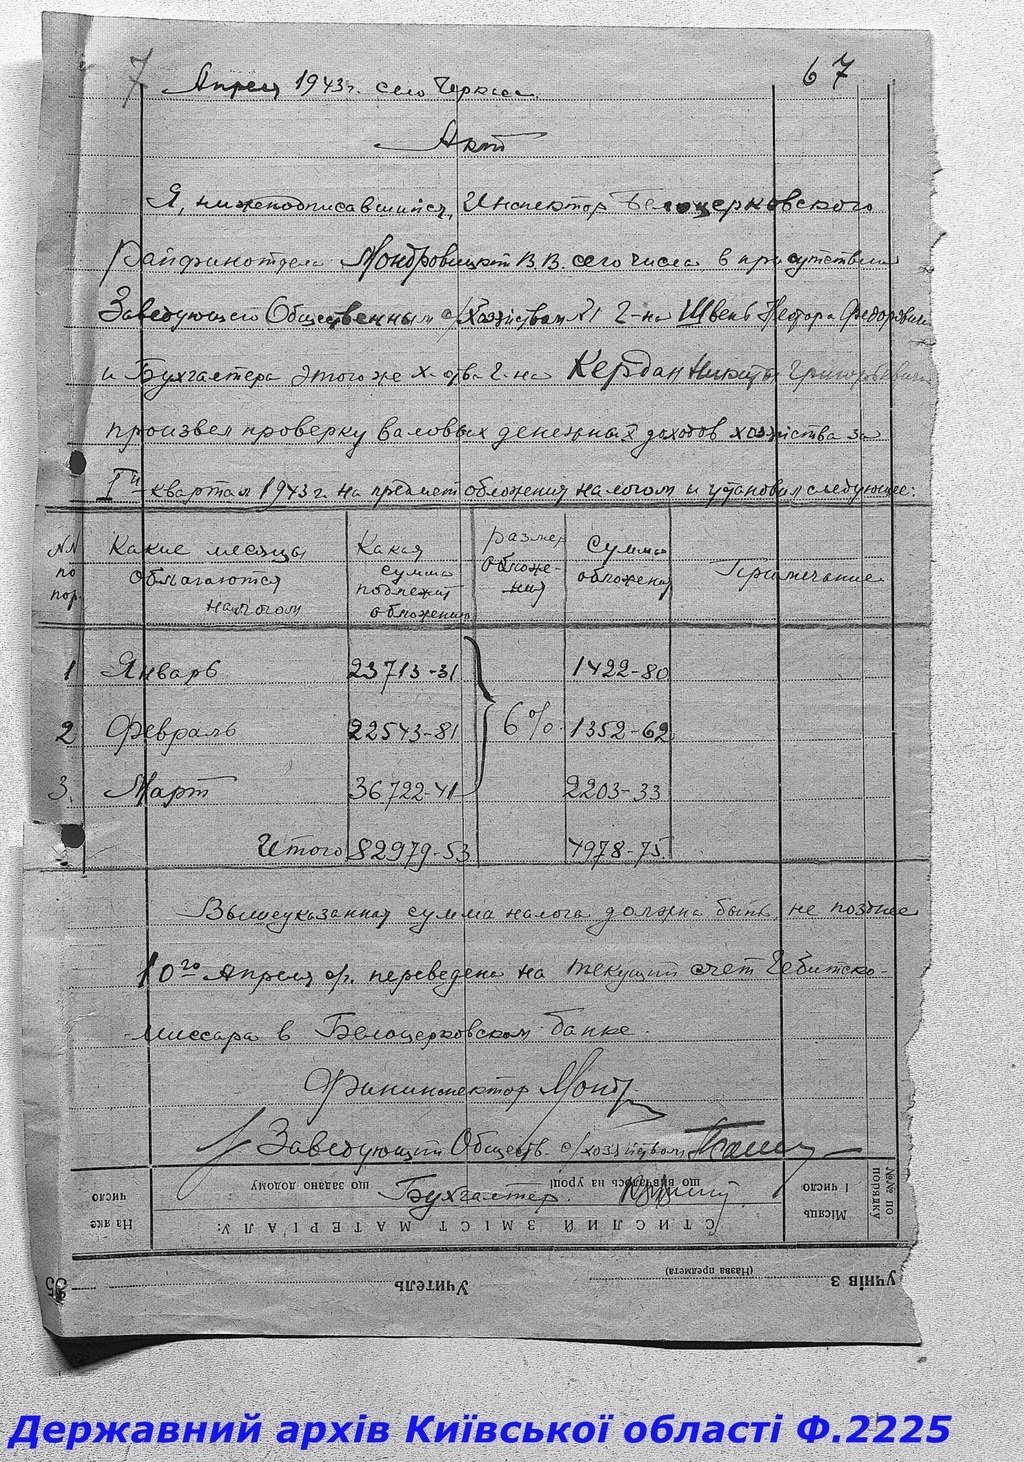 7 Апреля 1943 г. село Черкасс. 67
Акт
Я, нижеподписавшийся, Инспектор Белоцерковского
Райфинотдела В.В. сего числа в присутствии
Заведующего Общественным с/хозяйством №1 г-на Швень Нестора Федоровича
и Бухгалтера этого же х-ва г-на Кердан Никиты Григорьевича
произвел проверку валовых денежных доходов хозяйства за
Iй квартал 1943 г. на предмет обложения налогом и установил следующее:
NN по пор. Какие месяцы облагаются налогом Какая сумма подлежит обложению размер обложения сумма обложения Примечание
1 Январь 23713-31 1422-80
2 Февраль 22543-81 6% 1352-62
3. Март 36722-41 2203-33
Итого 82979-53 4978-75
Вышеуказанная сумма налога должна быть не позднее
10го Апреля с/г. переведена на текущий счет Гебитско-
миссара в Белоцерковском банке.
Фининспектор
Заведующий Обществ. с/хозяйством
Бухгалтер.
№№ по порядку
Місяць і число
СТИСЛИЙ ЗМІСТ МАТЕРІАЛУ:
що вивчалось на уроці
що задано додому
На яке число
учнів з
(Назва предмета)
Учитель
35
Державний архів Київської області Ф.2225